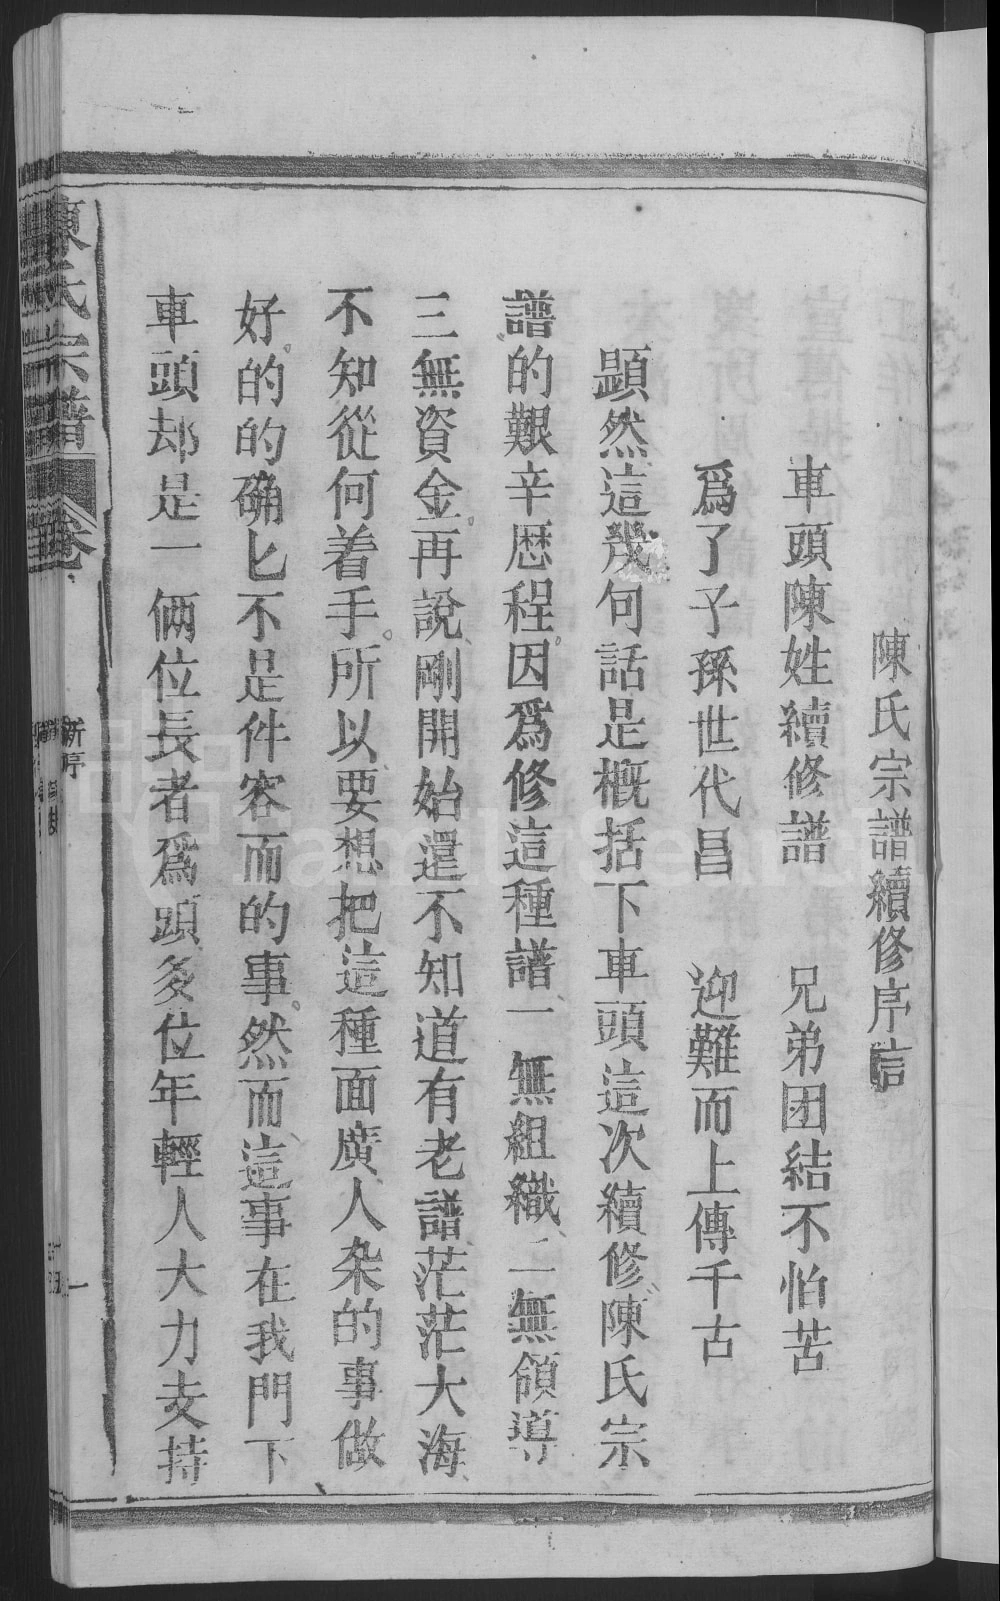 陳氏宗譜續修序信
車頭陳姓續修譜　兄弟团結不怕苦
爲了子孫世代昌　迎難而上傳千古
顕然這幾句話是概括下車頭這次續修陳氏宗
譜的艱辛歴程。因爲修這種譜、一無組織、二無領導
三無資金。再說剛開始還不知道有老譜、茫茫大海
不知從何着手。所以要想把這種面廣人杂的事做
好、的的确匕不是件容而的事。然而、這事在我門下
車頭却是一俩位長者爲頭、多位年輕人大力支持
陳氏宗譜
卷
新序
一